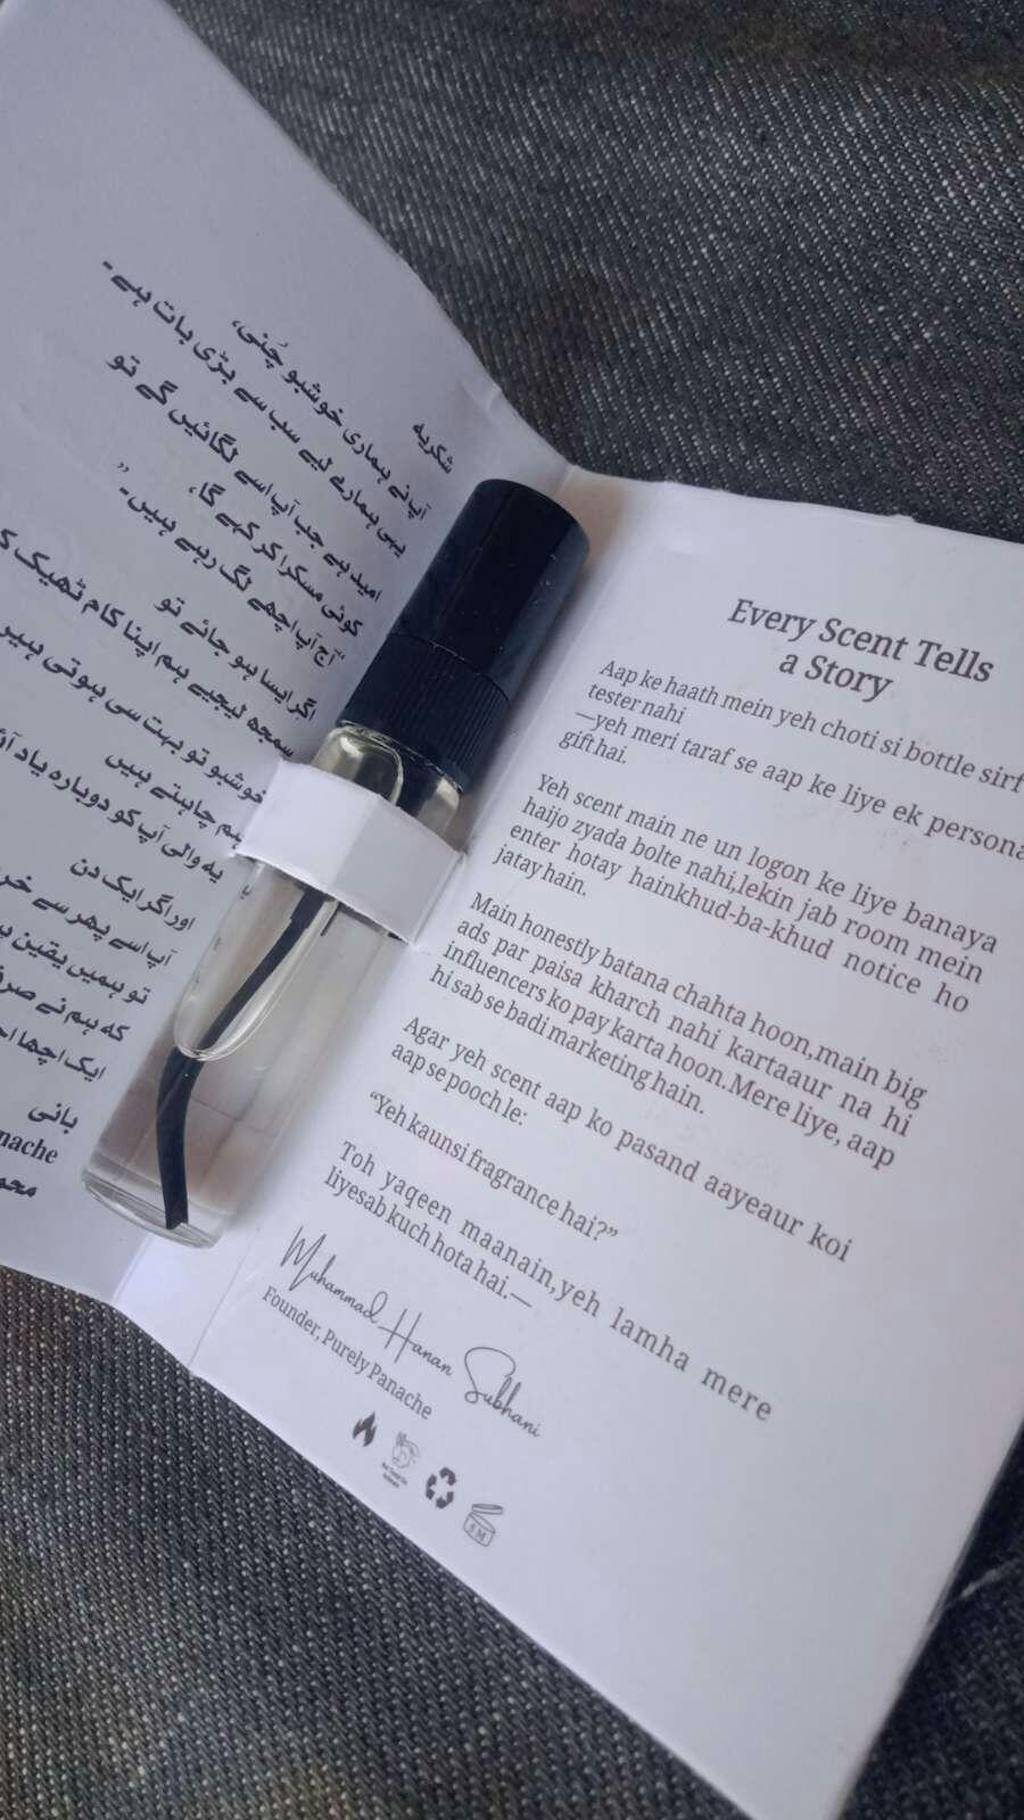 شکریہ
آپ نے ہماری خوشبو چُنی،
یہی ہمارے لیے سب سے بڑی بات ہے۔
امید ہے جب آپ اسے لگائیں گے تو
کوئی مسکرا کر کہے گا،
"آج آپ اچھے لگ رہے ہیں۔"
اگر ایسا ہو جائے تو
سمجھ لیجیے ہم نے اپنا کام ٹھیک
خوشبو تو بہت سی ہوتی ہیں
ہم چاہتے ہیں
یہ والی آپ کو دوبارہ یاد
اور اگر ایک دن
آپ اسے پھر سے
تو ہمیں یقین
کہ ہم نے صرف
ایک اچھا
بانی
Every Scent Tells
a Story
Aap ke haath mein yeh choti si bottle sirf
tester nahi
—yeh meri taraf se aap ke liye ek
gift hai.
Yeh scent main ne un logon ke liye banaya
haijo zyada bolte nahi,lekin jab room mein
enter hotay hainkhud-ba-khud notice ho
jatay hain.
Main honestly batana chahta hoon,main big
ads par paisa kharch nahi kartaaur na hi
influencers ko pay karta hoon.Mere liye, aap
hi sab se badi marketing hain.
Agar yeh scent aap ko pasand aayeaur koi
aap se pooch le:
“Yeh kaunsi fragrance hai?”
Toh yaqeen maanain,yeh lamha mere
liyesab kuch hota hai.—
Muhammad Hanan Subhani
Founder, Purely Panache